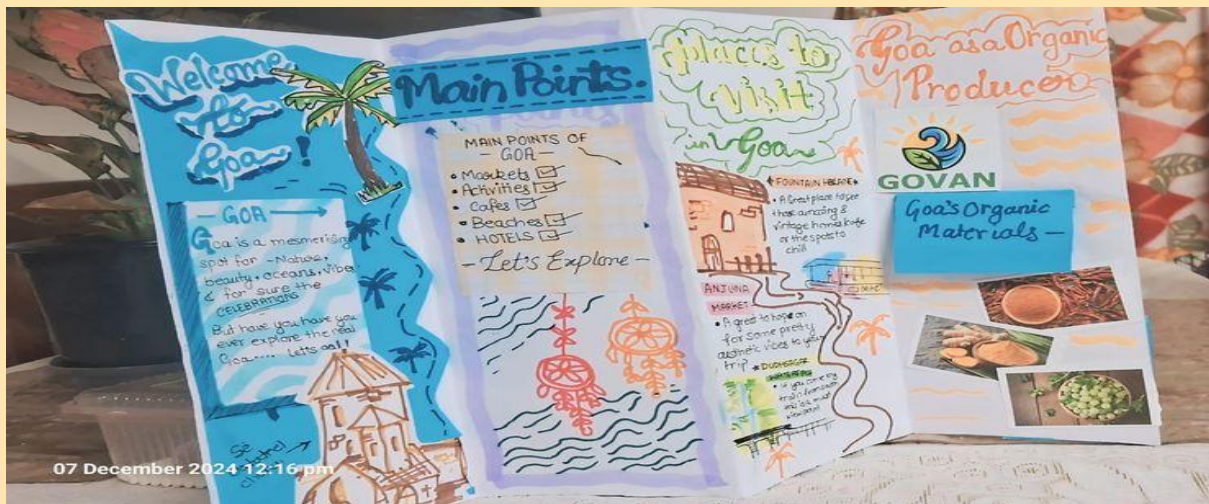 Welcome
To
Goa!
- GOA →
Goa is a mesmerising
spot for - Nature,
beauty, oceans, vibes
& for sure the
CELEBRATIONS
But have you have you
ever explore the real
Goa.... Let's Go!!
Main Points.
MAIN POINTS OF
- GOA -
• Markets
• Activities
• Cafes
• Beaches
• HOTELS
- Let's Explore -
places to
Visit
in Goa
FOUNTAIN
• A Great place to see
those amazing &
vintage homes
or the spots to
chill
ANJUNA
MARKET
• A great to hope on
for some pretty
aesthetic vibes to your
trip
DUDHSAGAR
• if you come by
train from
this is a must
view point
Goa as a Organic
Producer
GOVAN
Goa's Organic
Materials -
07 December 2024 12:16 pm